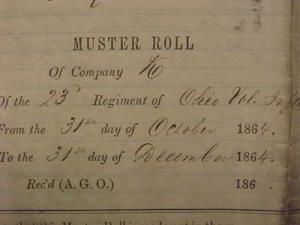 MUSTER ROLL
Of Company K
Of the 23d Regiment of Ohio Vol. Inf
From the 31st day of October 1864.
To the 31st day of December 1864.
Rec'd (A. G. O.) 186 .